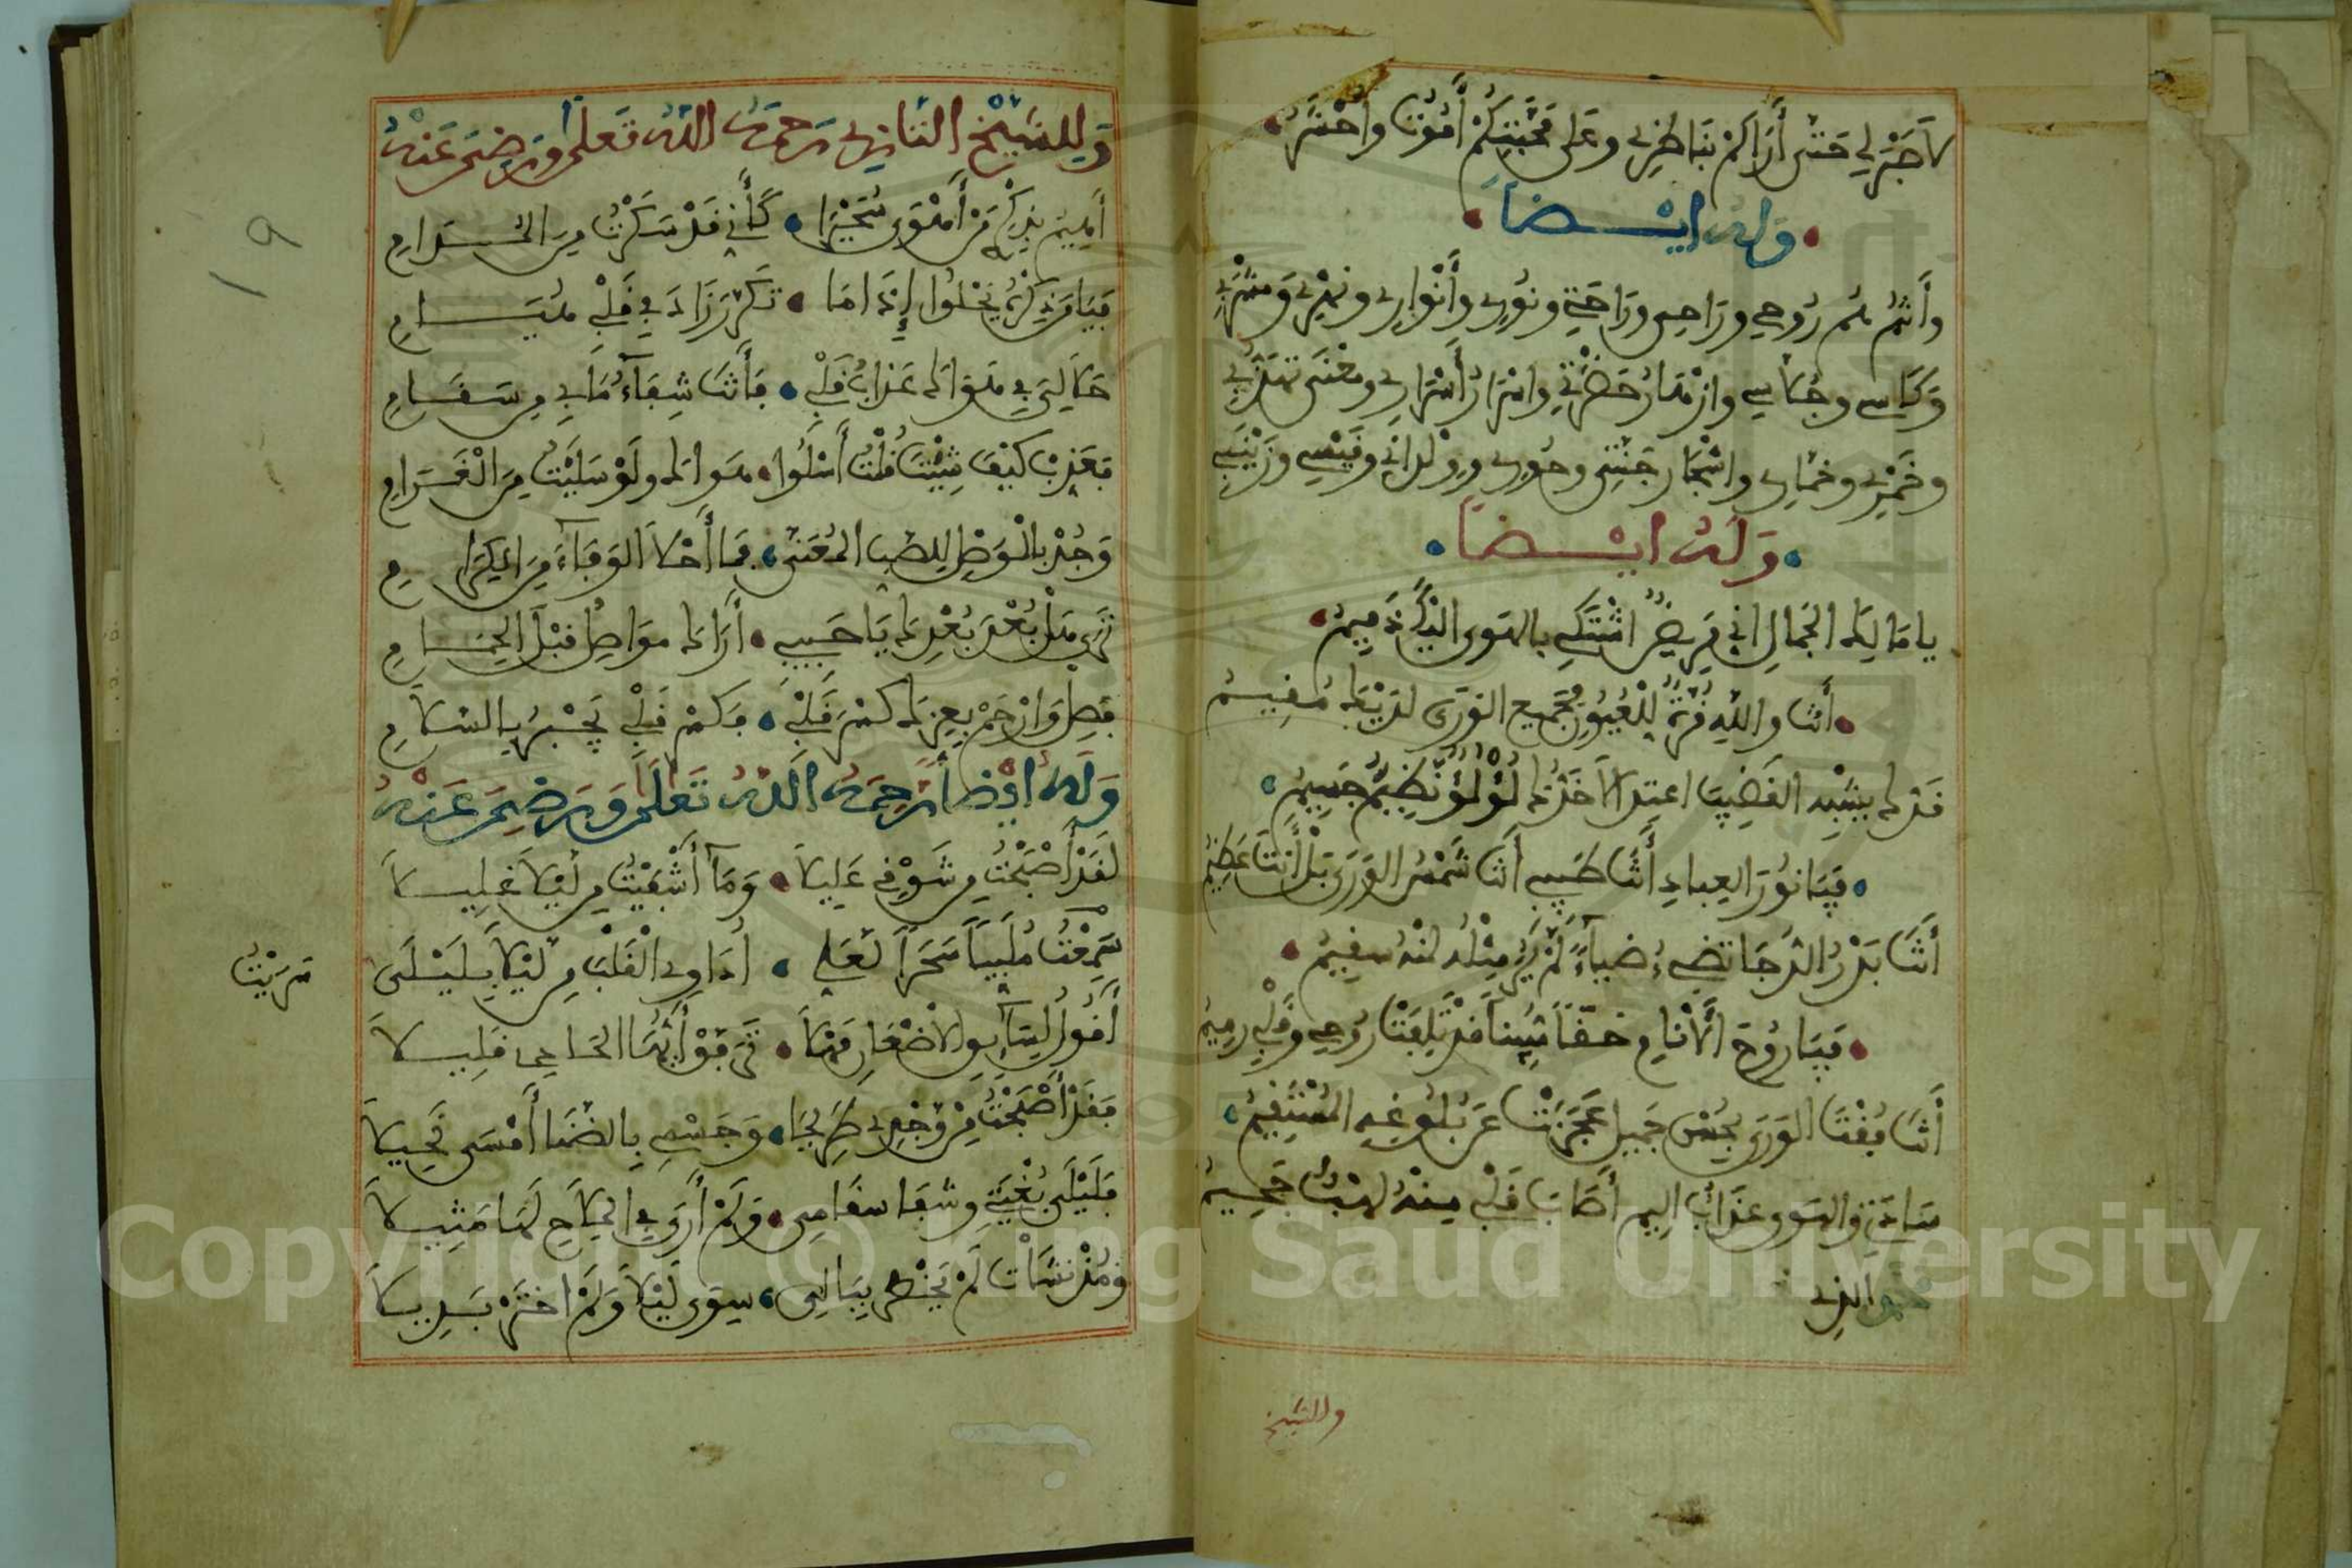 لاصبر لي حتى أراكم بناظري وعلى محبتكم أموت وأحشر
وله ايضا
وأنتم هم روحي وراحي وراحتي ونوري وأنواري ونهري ومشربي
وكاسي وجلاسي وازهار حضرتي واسرار أسراري ومغنى تهذبي
وخمري وخماري واشجار جنتي وحوري وولداني وقيسي وزينبي
وله ايضا
يا مالك الجمال اني مريض اشتكي بالهوى اليك نديم
أنت والله قرة للعيون جميع الورى لديك مقيم
قدك يشبه القضيب اعتدالا خدك لؤلؤ نظيم جسيم
فيا نور العباد أنت طبيبي أنت شمس الورى بل أنت عظيم
أنت بدر الدجا تضيء ضياء لم ير مثله لنه سقيم
فيا روح الأنام حقا يقينا قد تلفت روحي وقلبي رميم
أنت فقت الورى بحسن جميل عجزت عن بلوغه
سادتي والهوى عذاب اليم أصاب قلبي منه لهيب جحيم
الذي
وللشيخ
وللشيخ التازي رحمه الله تعلى ورضي عنه
أهيم بذكر من أهوى تحيرا كأني قد سكرت من المدام
فيا من ذكره يحلوا إذا ما تكرر زاد في قلبي هيام
حلا لي في هواك عذاب قلبي فأنت شفاء ما بي من سقام
فعذب كيف شيت فلست أسلوا هواك ولو سليت من الغرام
وجد بالوصل للصب المعنى فما أحلا الوفاء من الكرام
ترى هل بعد بعدك يا حبيبي أراك مواصل قبل الحمام
فصل وارحم بعزك كسر قلبي فكسر قلبي يجبر بالسلام
وله ايضا رحمه الله تعلى ورضي عنه
لقد أصبحت من شوقي عليلا وما أشفيت من ليلا غليلا
سرقت ملبيا سحرا لعلي أداوي القلب من ليلا بليلى
سريت
أقول لسائق الاضعان مهلا ترفق أيها الحادي قليلا
فقد أصبحت من وجدي طريحا وجسمي بالضنا أمسى نحيلا
فليلى بغيتي وشفا سقامي ولم أرى في الملاح لها مثيلا
ومذ نشأت لم يخطر ببالي سوى ليلا ولم اختر بديلا
١٩
Copyright © King Saud University